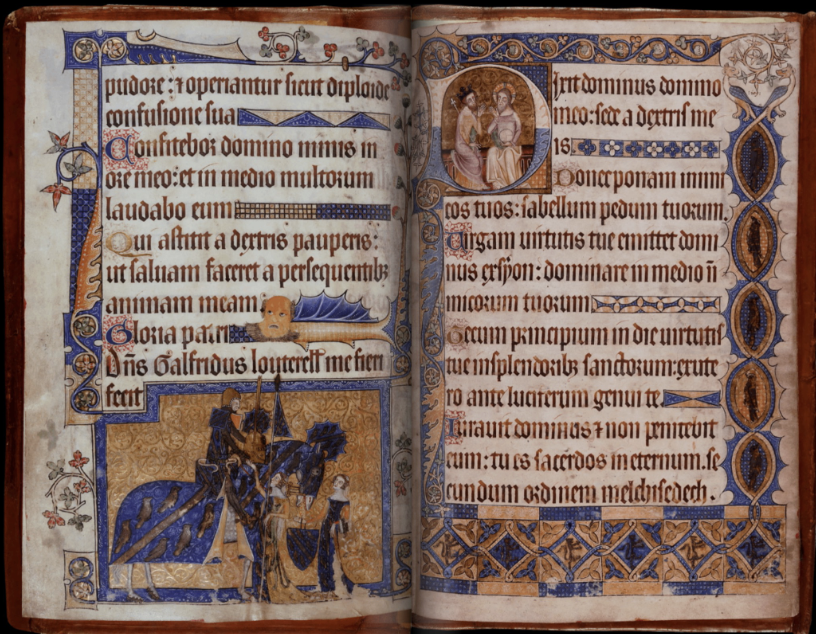 pudore : ⁊ operiantur sicut diploide
confusione sua
Confitebor domino nimis in
ore meo : et in medio multorum
laudabo eum
Qui astitit a dextris pauperis :
ut saluam faceret a persequentibꝫ
animam meam
Gloria patri
Dn̄s Galfridus louterell me fieri
fecit
Dixit dominus domino
meo : sede a dextris me
is
Donec ponam inimi
cos tuos : scabellum pedum tuorum.
Uirgam uirtutis tue emittet domi
nus ex syon : dominare in medio in̄
imicorum tuorum
Tecum principium in die uirtutis
tue in splendoribꝫ sanctorum : ex ute
ro ante luciferum genui te
Iurauit dominus ⁊ non penitebit
eum : tu es sacerdos in eternum. se
cundum ordinem melchisedech .